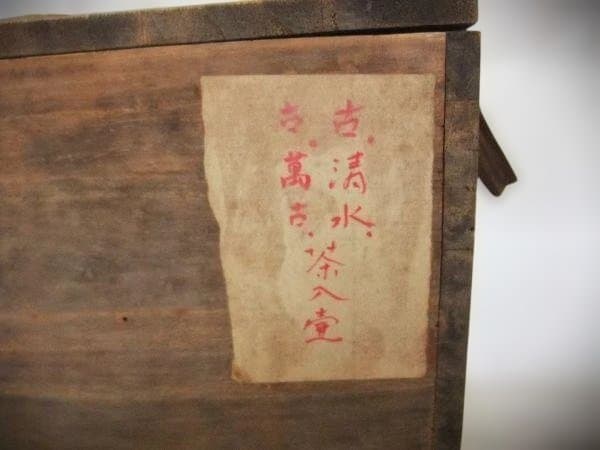 古、清水、
古、萬古、
茶入壷